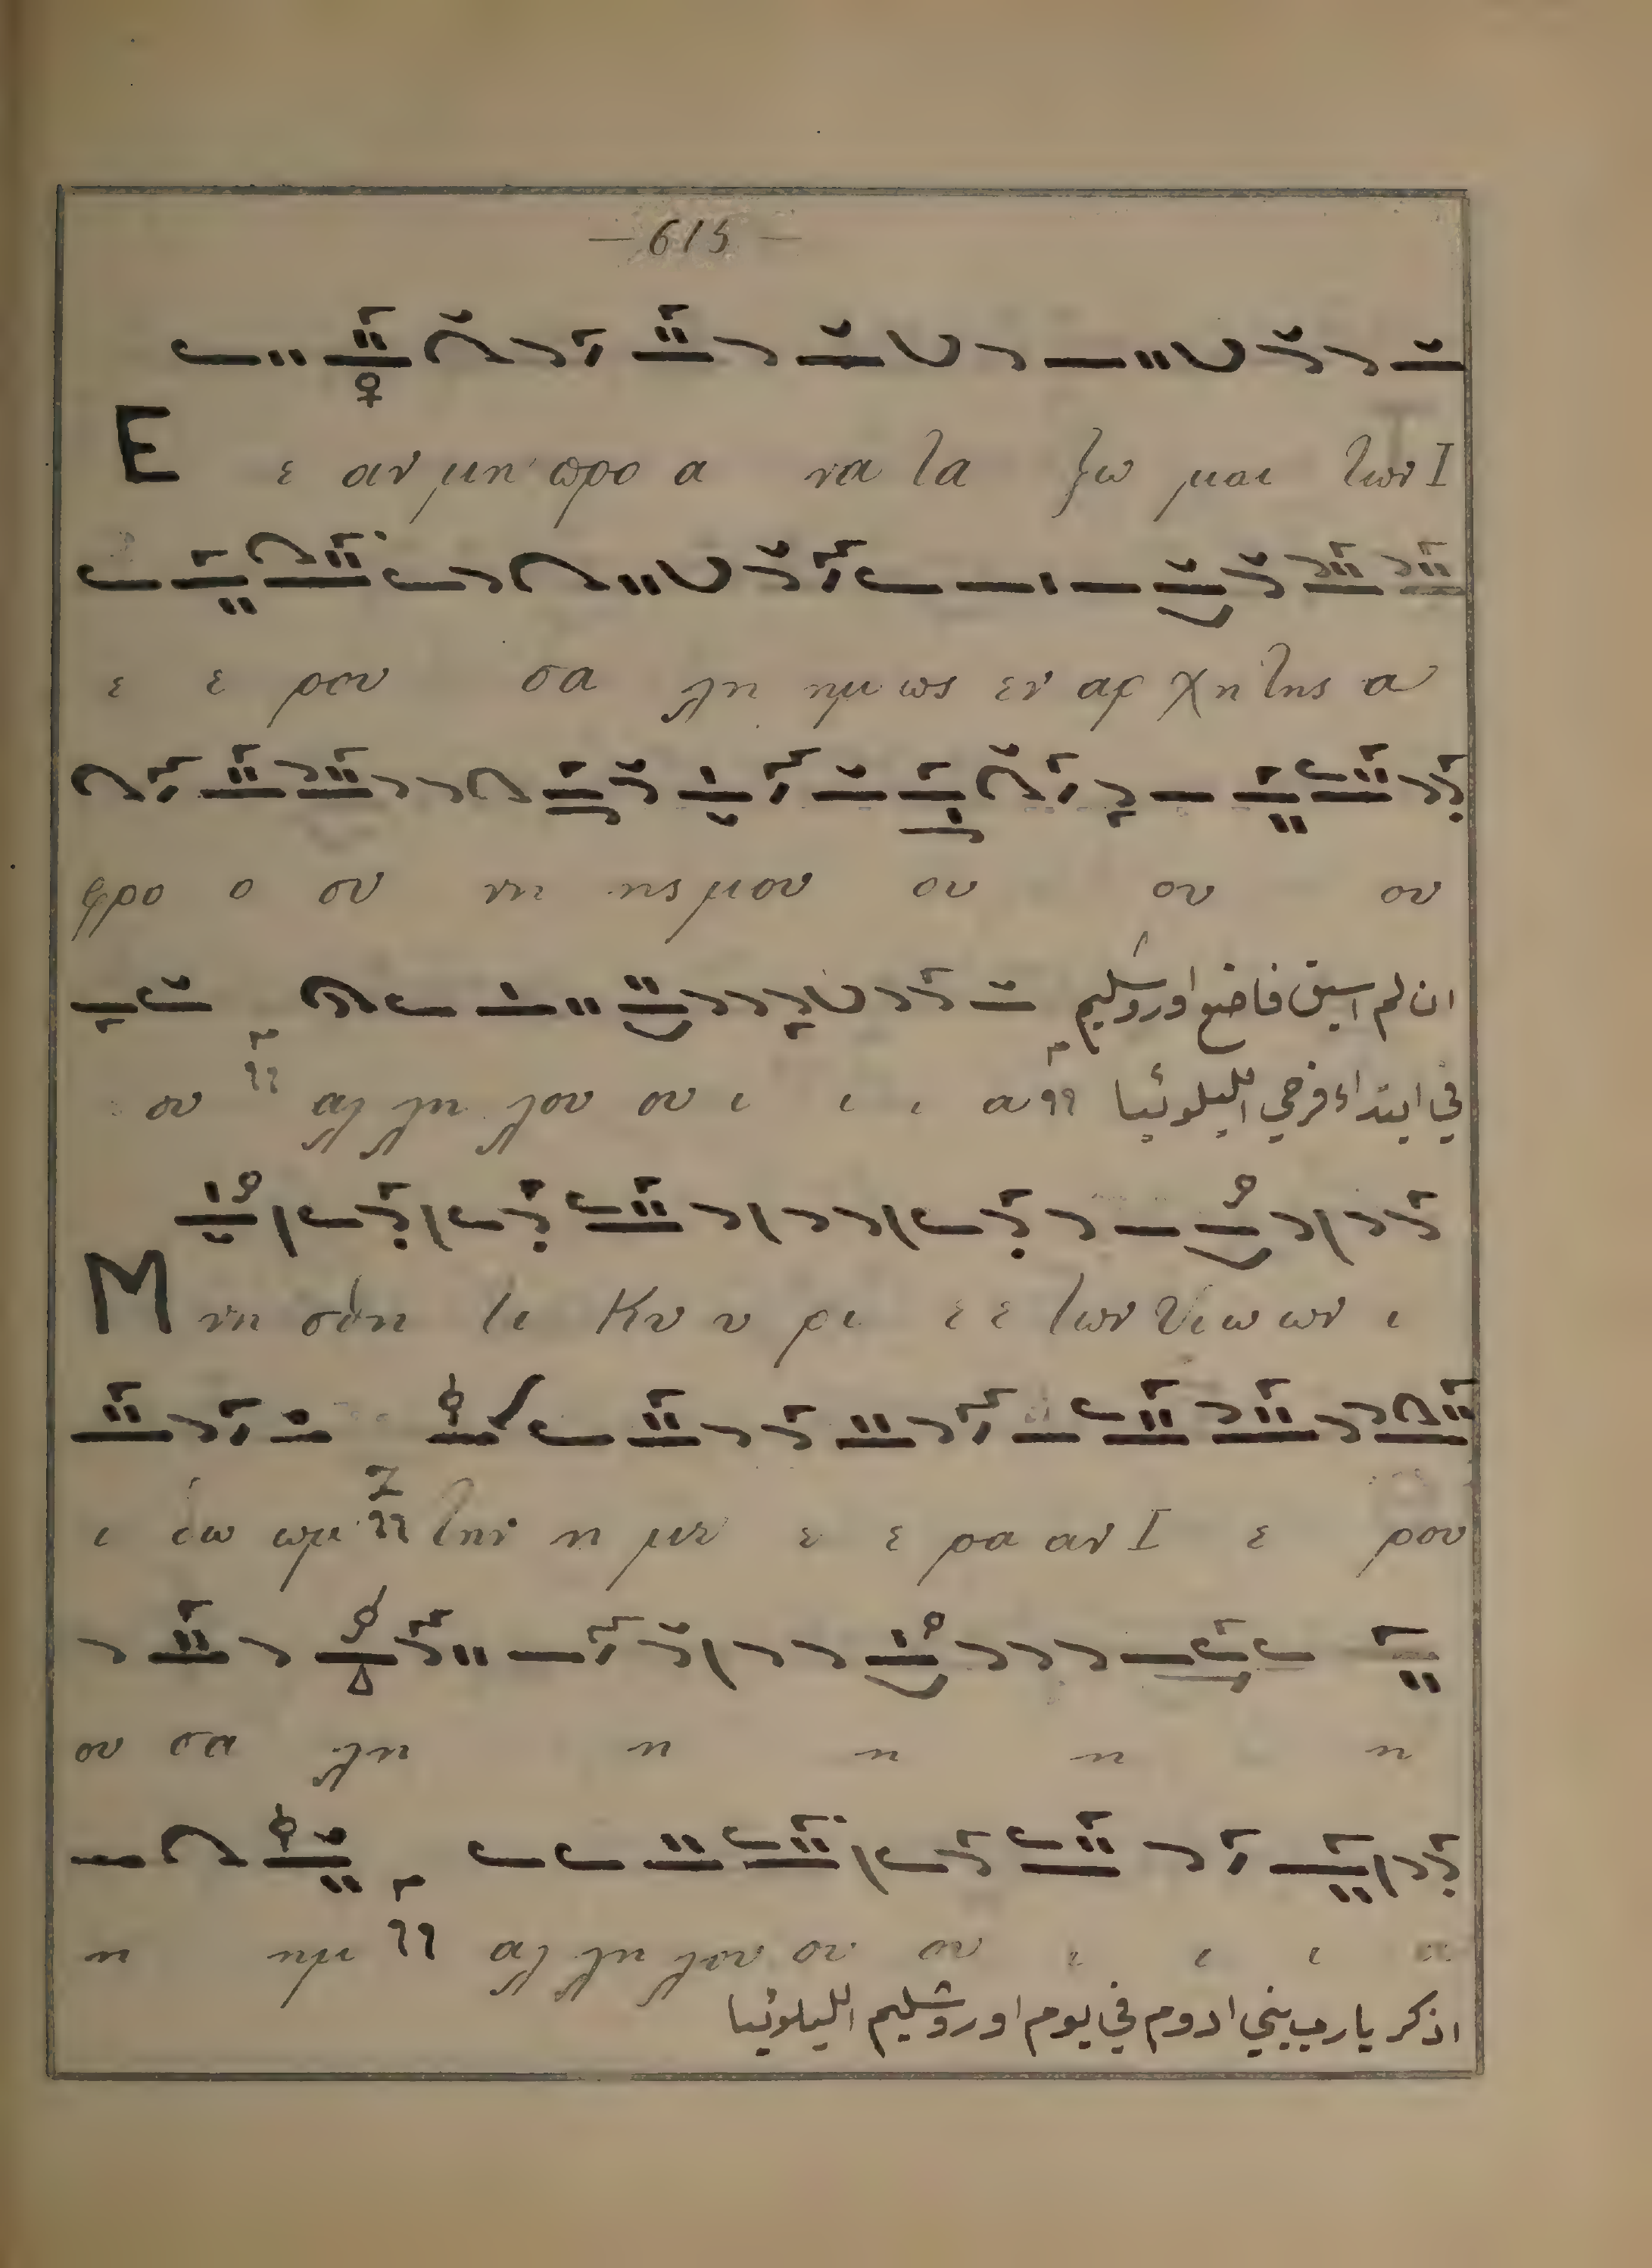 — 615 —
Ε ε αν μη προ α να τα ξω μαι των Ι
ε ε ρου σα λη ημ ως εν αρ χη της α
φρο ο συ νη ης μου ου ου ου
ان لم اسبق فاضع اورشليم
ου αλ λη λου ου ι ι ι α في ابتداء فرحي الليلوئيا
Μ νη σθη τι Κυ υ ρι ε ε των Υι ω ων ι
ι δω ωμ την η με ε ε ρα αν Ι ε ρου
ου σα λη η η η η
η ημ αλ λη λου ου ου ι ι ι α
اذكر يا رب بني ادوم في يوم اورشليم الليلوئيا